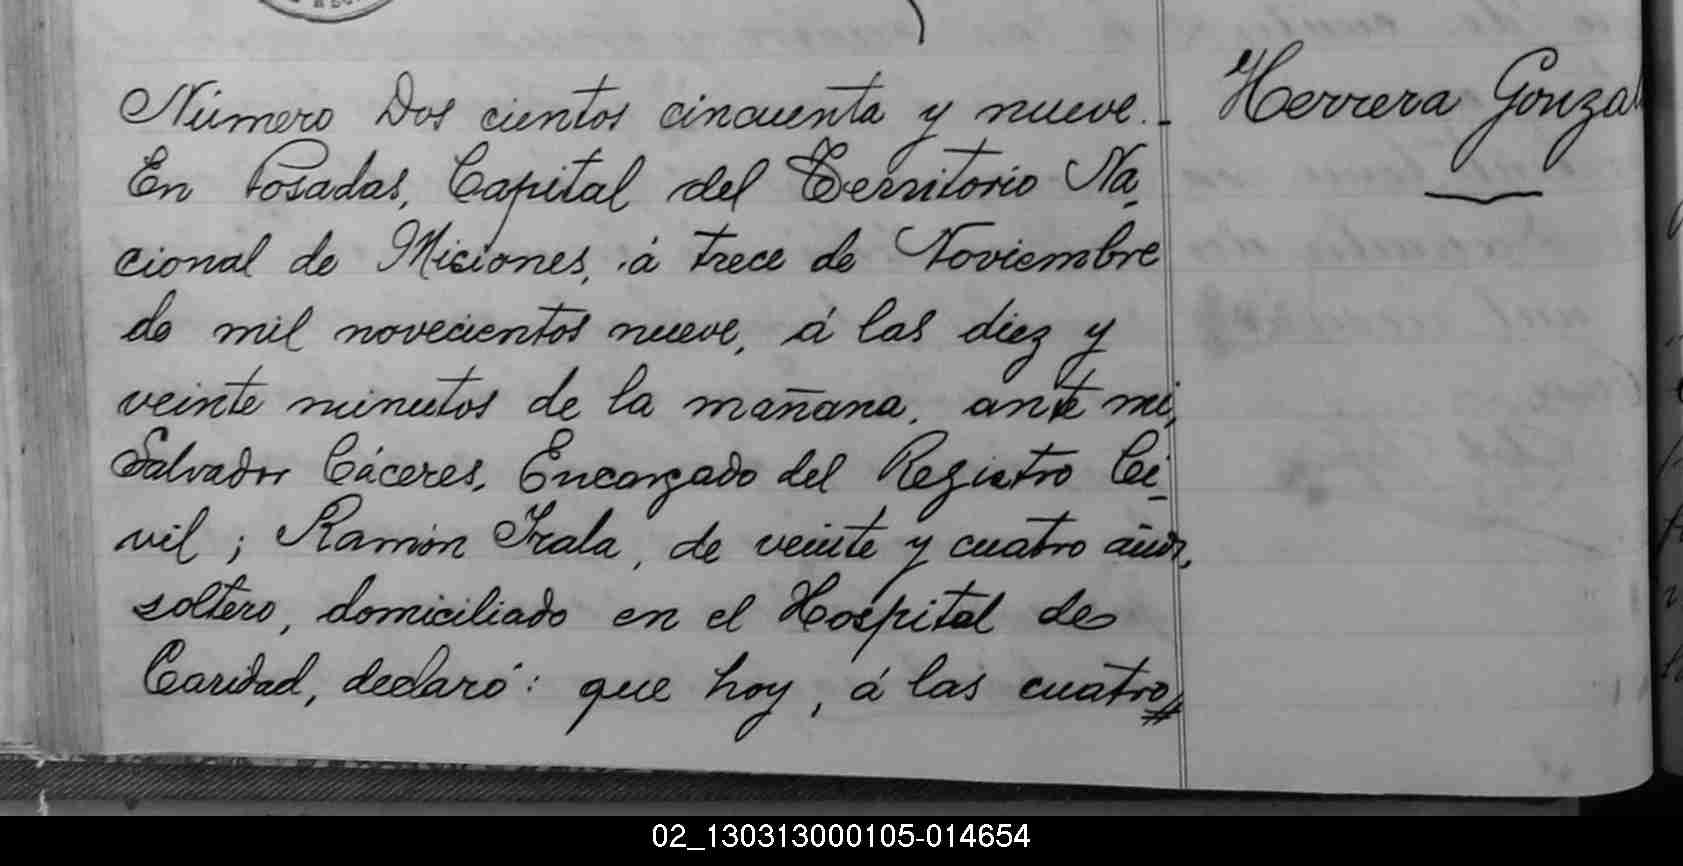 Número Dos cientos cincuenta y nueve.-
En Posadas, Capital del Territorio Na-
cional de Misiones, á trece de Noviembre
de mil novecientos nueve, á las diez y
veinte minutos de la mañana, ante mi,
Salvador Cáceres, Encargado del Registro Ci-
vil; Ramón Irala, de veinte y cuatro años,
soltero, domiciliado en el Hospital de
Caridad, declaró: que hoy, á las cuatro
Herrera Gonzal
02_130313000105-014654